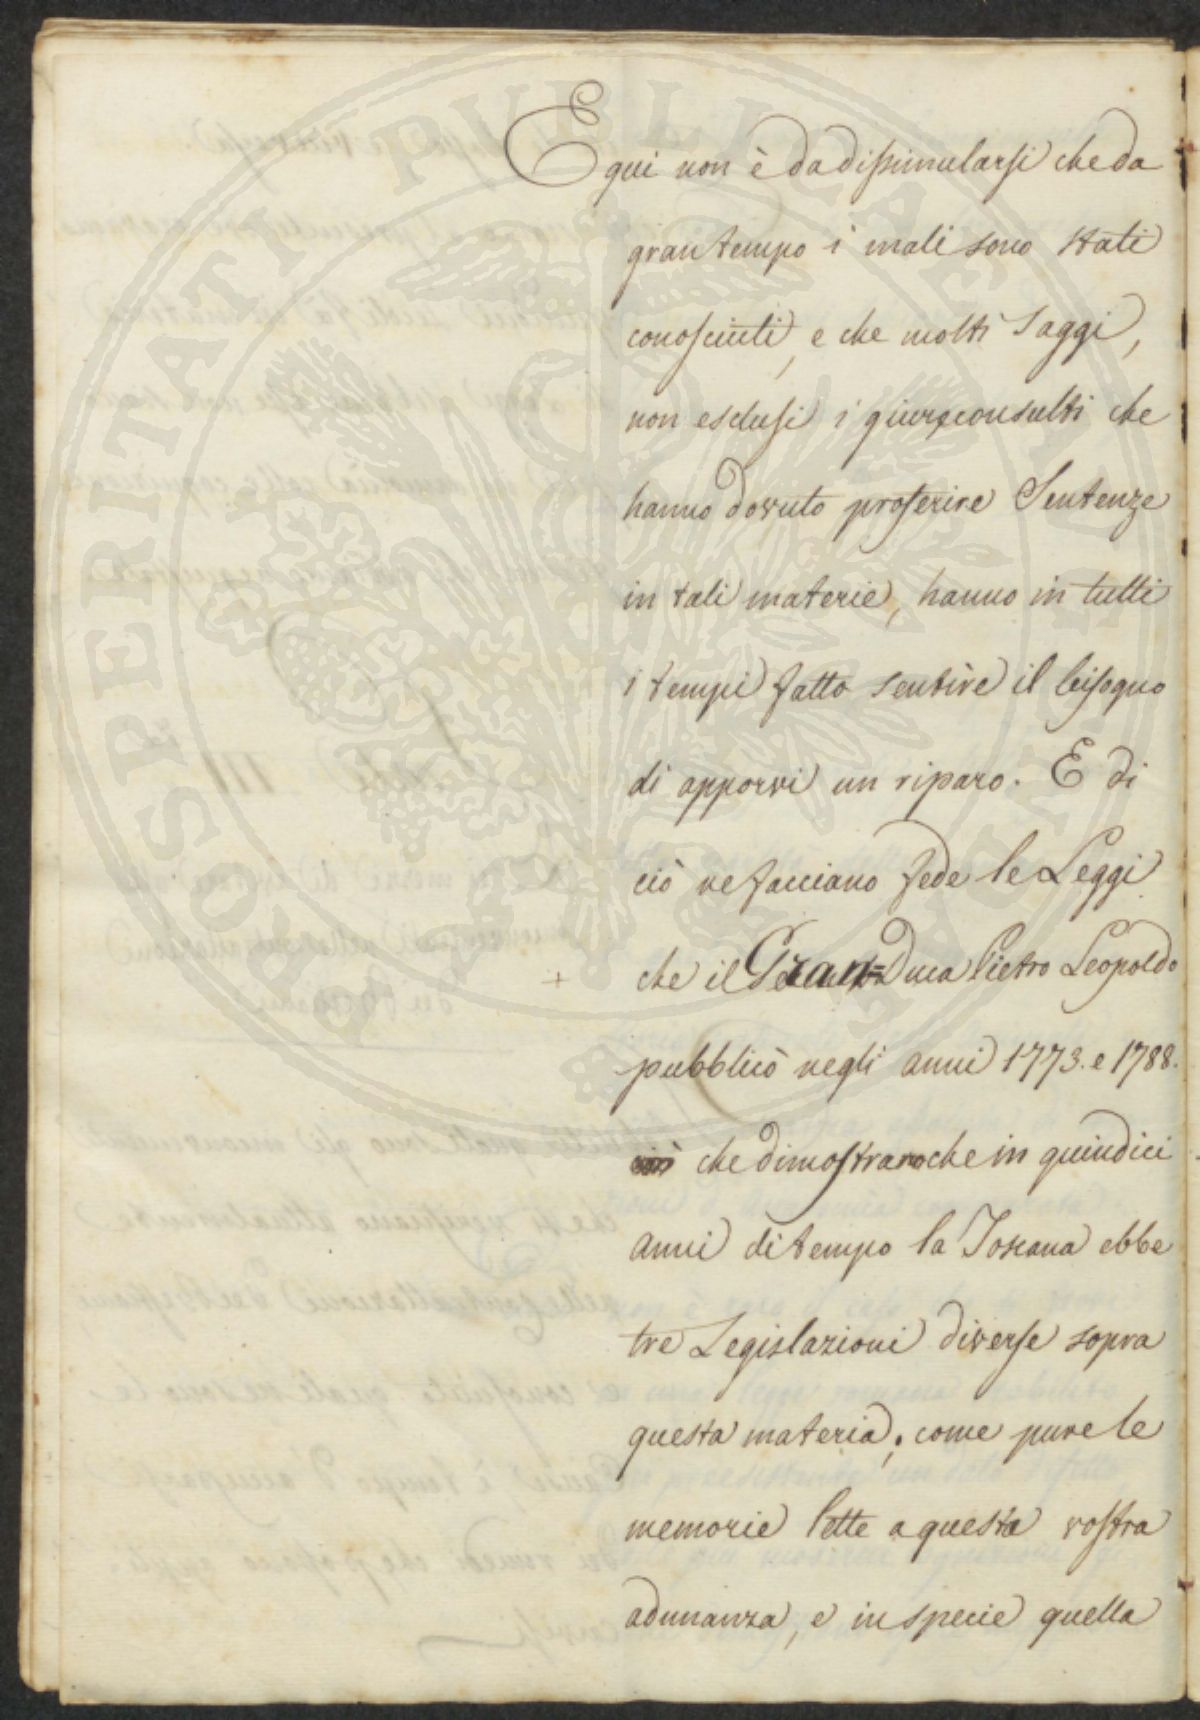 E qui non è da dissimularsi che da
gran tempo i mali sono stati
conosciuti, e che molti saggi,
non esclusi i giureconsulti che
hanno dovuto proferire Sentenze
in tali materie, hanno in tutti
i tempi fatto sentire il bisogno
di apporvi un riparo. E di
ciò ne facciano fede le Leggi
che il Gran=Duca Pietro Leopoldo
pubblicò negli anni 1773. e 1788.
che dimostrano che in quindici
anni di tempo la Toscana ebbe
tre Legislazioni diverse sopra
questa materia; come pure le
memorie lette a questa vostra
adunanza, e in specie quella
PROSPERITATI PUBLICAE AUGENDAE